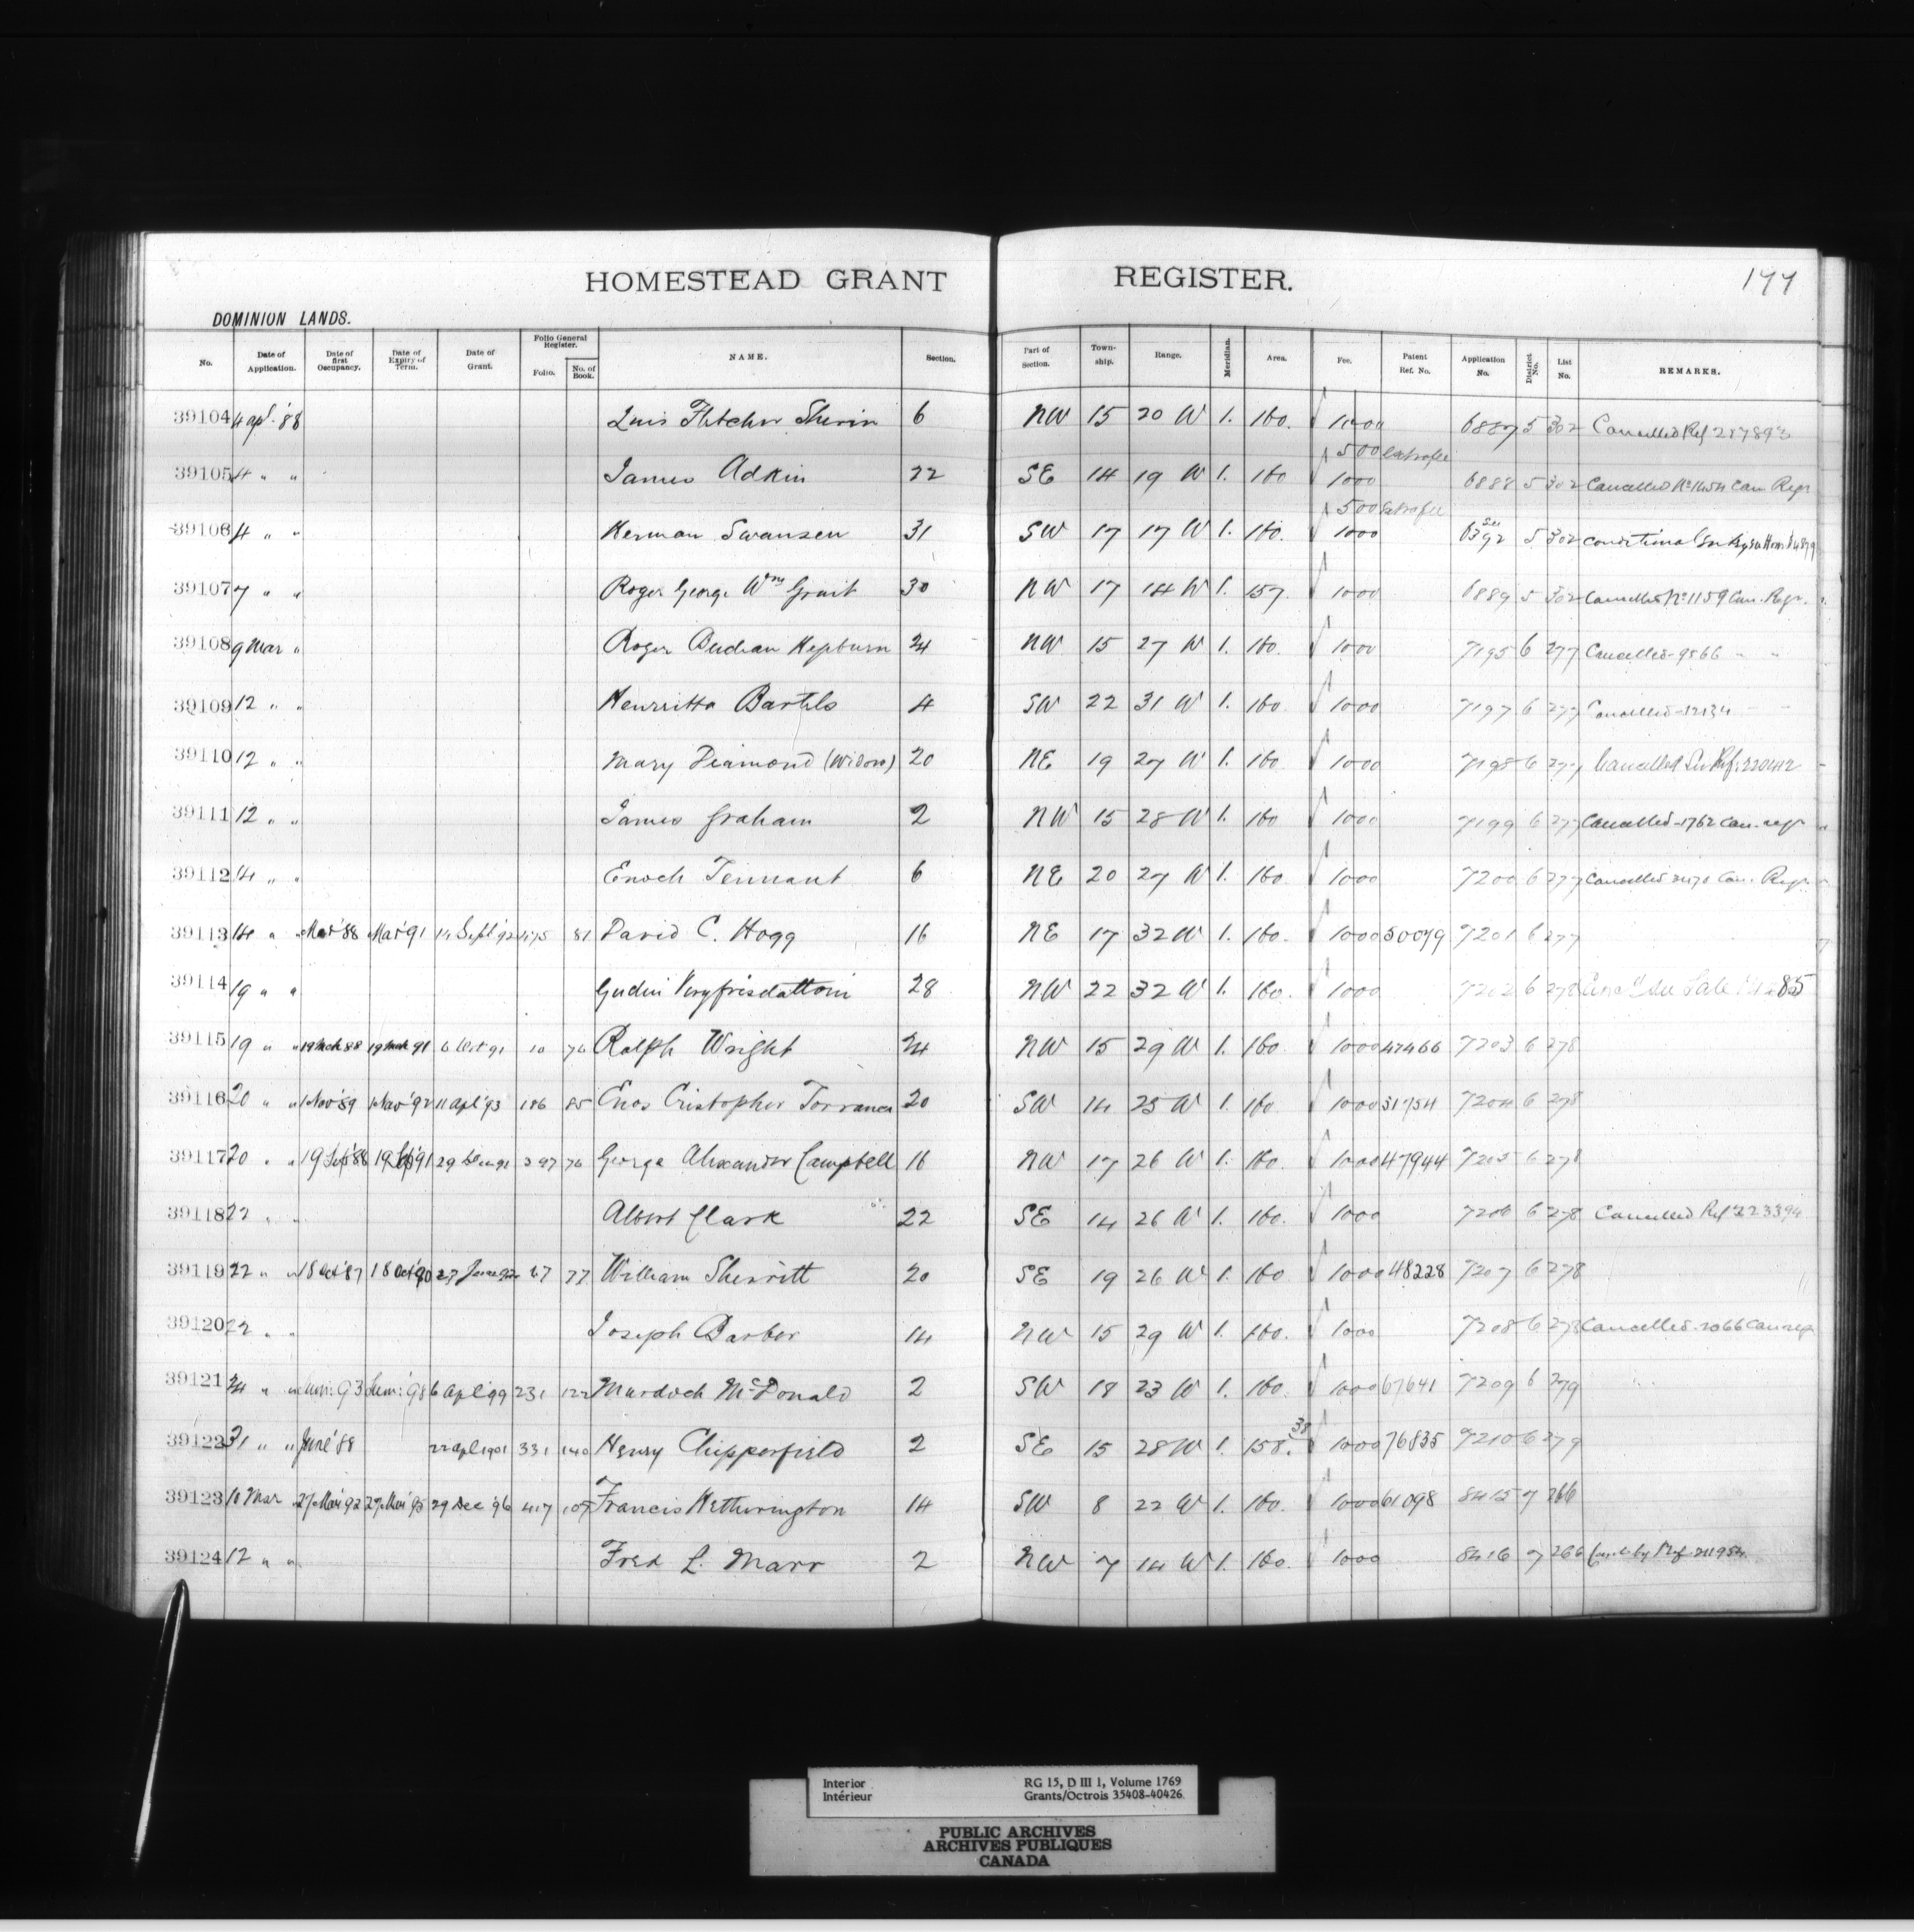 HOMESTEAD GRANT REGISTER. 177
DOMINION LANDS.
No. Date of Application. Date of first Occupancy. Date of Expiry of Term. Date of Grant. Folio General Register. Folio. No. of Book. NAME. Section. Part of Section. Township. Range. Meridian. Area. Fee. Patent Ref. No. Application No. District No. List No. REMARKS.
39104 4 apl. '88 Fletcher 6 NW 15 20 W 1. 160. 1000 6887 5 302 Cancelled Ref
500 extra fee
39105 4 " " James Adkin 22 SE 14 19 W 1. 160 1000 6888 5 302 Cancelled No 1454 Can Regr
500 Extra fee
39106 4 " " Herman Swansen 31 SW 17 17 W 1. 160. 1000 5 302
39107 7 " " Roger George Wm 30 NW 17 14 W 1. 157. 1000 6889 5 302 Cancelled No 1159 Can. Regr.
39108 9 Mar " Roger Hepburn 24 NW 15 27 W 1. 160. 1000 7195 6 277 Cancelled - 9566 " "
39109 12 " " Henrietta Bartels 4 SW 22 31 W 1. 160. 1000 7197 6 277 Cancelled - 12134 " "
39110 12 " " Mary Diamond (Widow) 20 NE 19 27 W 1. 160. 1000 7198 6 277 Cancelled See Ref. 220412
39111 12 " " James Graham 2 NW 15 28 W 1. 160 1000 7199 6 277 Cancelled - 1762 Can. regr
39112 14 " " Enoch Tennant 6 NE 20 27 W 1. 160. 1000 7200 6 277 Cancelled Can. Regr.
39113 14 " " Mar '88 Mar '91 14 Sept '92 475 81 David C. Hogg 16 NE 17 32 W 1. 160. 1000 50079 7201 6 277
39114 19 " " 28 NW 22 32 W 1. 160. 1000 7202 6 278 See Sale
39115 19 " " 19 Mch 88 19 Mch 91 6 Oct 91 10 76 Ralph Wright 24 NW 15 29 W 1. 160. 1000 47466 7203 6 278
39116 20 " " 1 Nov '89 1 Nov '92 11 Apl '93 186 85 Enos Cristopher Torrance 20 SW 14 25 W 1. 160. 1000 51754 7204 6 278
39117 20 " " 19 Sept '88 19 Sept '91 29 Dec 91 397 76 George Alexander Campbell 16 NW 17 26 W 1. 160. 1000 47944 7205 6 278
39118 22 " " Albert Clark 22 SE 14 26 W 1. 160. 1000 7206 6 278 Cancelled Ref 223394
39119 22 " " 18 Oct '87 18 Oct '90 27 67 77 William Sherritt 20 SE 19 26 W 1. 160. 1000 48228 7207 6 278
39120 22 " " Joseph Barber 14 NW 15 29 W 1. 160. 1000 7208 6 278 Cancelled - 2066 Can regr
39121 24 " " 93 98 6 Apl '99 231 122 Murdoch McDonald 2 SW 18 23 W 1. 160. 1000 67641 7209 6 279
39122 31 " " June '88 22 apl 1901 331 140 Henry Chipperfield 2 SE 15 28 W 1. 158.38 1000 76835 7210 6 279
39123 10 Mar " 27 Mar '92 27 Mar '95 29 Dec '96 417 107 Francis Hetherington 14 SW 8 22 W 1. 160. 1000 61098 8415 7 266
39124 12 " " Fred L. Marr 2 NW 7 14 W 1. 160. 1000 8416 7 266 by Ref 211954
Interior RG 15, D III 1, Volume 1769
Intérieur Grants/Octrois 35408-40426
PUBLIC ARCHIVES
ARCHIVES PUBLIQUES
CANADA